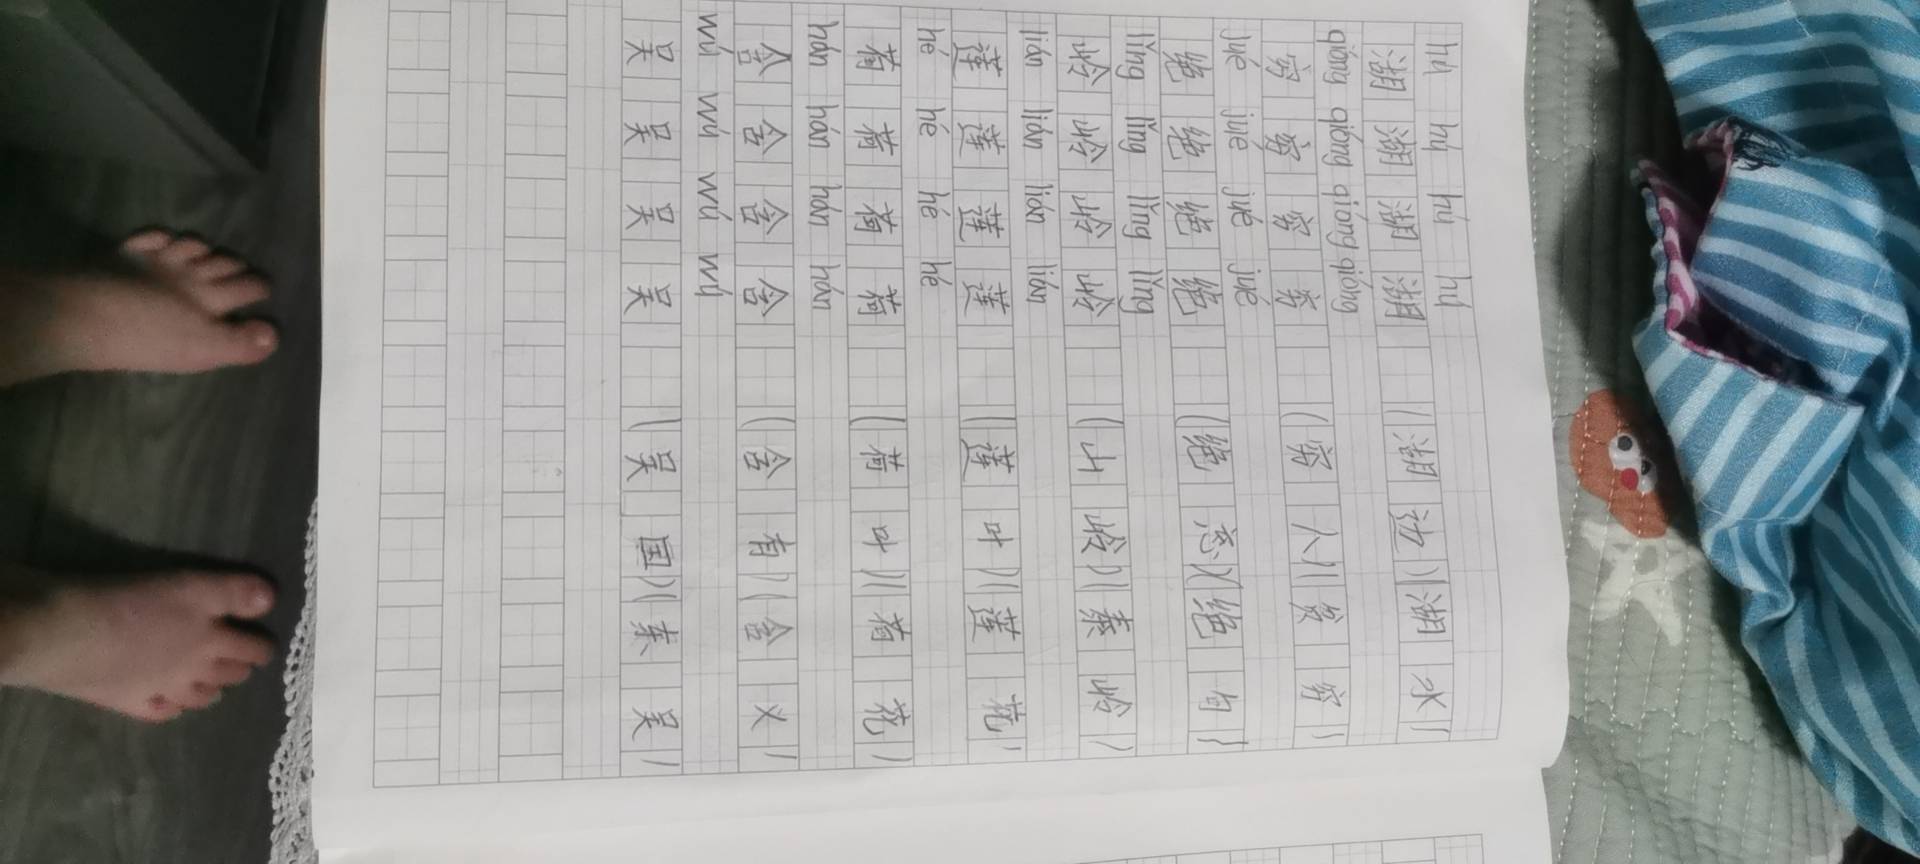 hú hú hú hú
湖 湖 湖 湖 (湖边)(湖水)
qióng qióng qióng qióng
穷 穷 穷 穷 (穷人)(贫穷)
jué jué jué jué
绝 绝 绝 绝 (绝 )(绝句)
lǐng lǐng lǐng lǐng
岭 岭 岭 岭 (山岭)(秦岭)
lián lián lián lián
莲 莲 莲 莲 (莲叶)(莲花)
hé hé hé hé
荷 荷 荷 荷 (荷叶)(荷花)
hán hán hán hán
含 含 含 含 (含有)(含义)
wú wú wú wú
吴 吴 吴 吴 (吴国)( 吴)